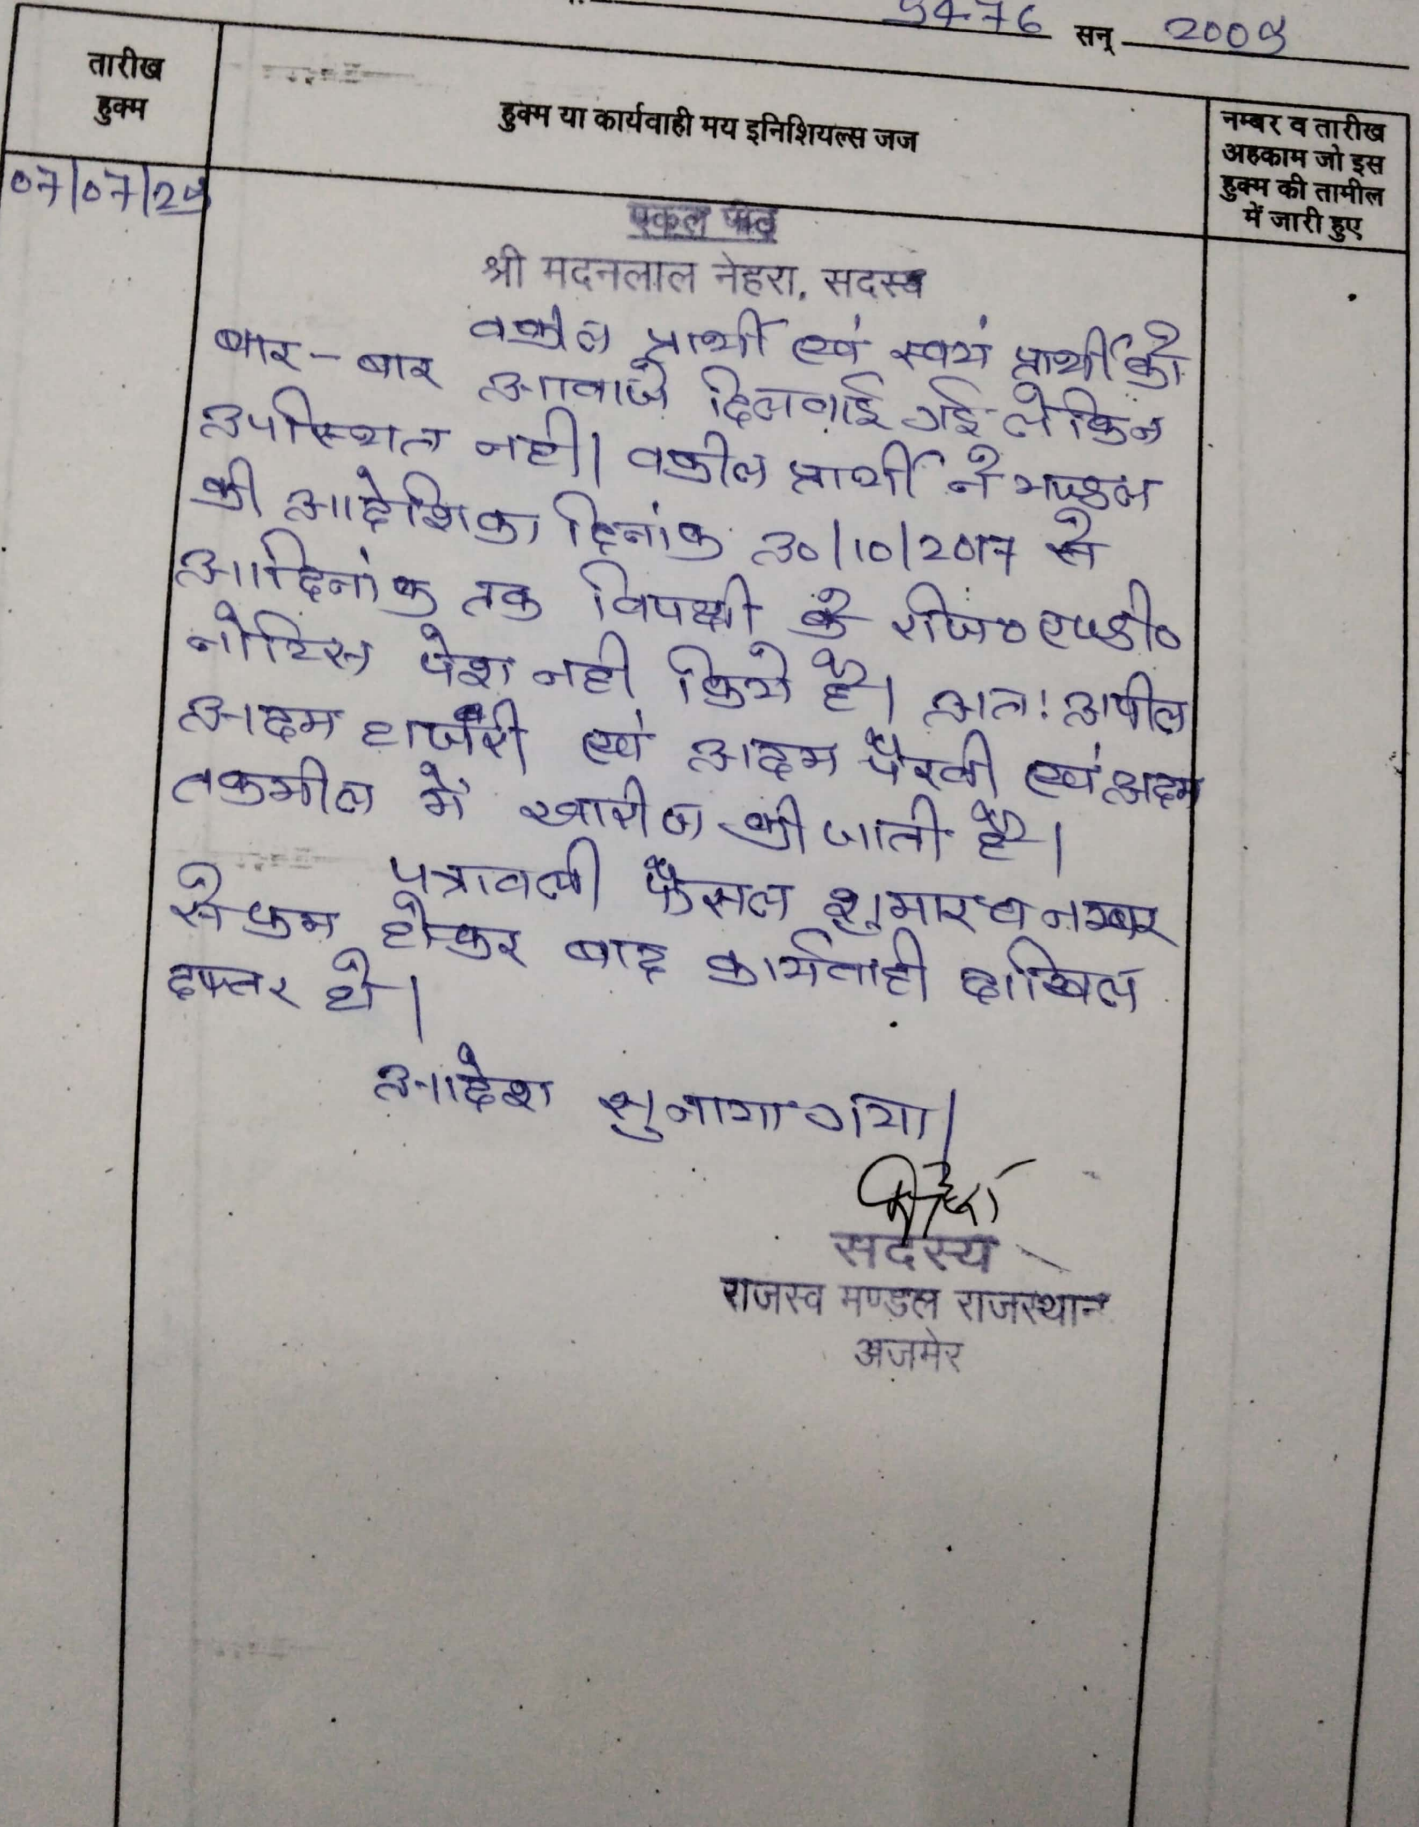 5476 सन् 2009
तारीख
हुक्म
हुक्म या कार्यवाही मय इनिशियल्स जज
नम्बर व तारीख
अहकाम जो इस
हुक्म की तामील
में जारी हुए
07/07/25
एकल पीठ
श्री मदनलाल नेहरा, सदस्य
वकील प्रार्थी एवं स्वयं प्रार्थी को
बार-बार आवाजे दिलवाई गई लेकिन
उपस्थित नही। वकील प्रार्थी ने मण्डल
की आदेशिका दिनांक 30/10/2017 से
आदिनांक तक विपक्षी के रजि० एण्डी०
नोटिस पेश नही किये है। अतः अपील
अदम हाजरी एवं अदम पैरवी एवं अदम
तकमील में खारीज की जाती है।
पत्रावली फैसल शुमार व नम्बर
से कम होकर बाद कार्यवाही दाखिल
दफ्तर हो।
आदेश सुनाया गया।
सदस्य
राजस्व मण्डल राजस्थान
अजमेर